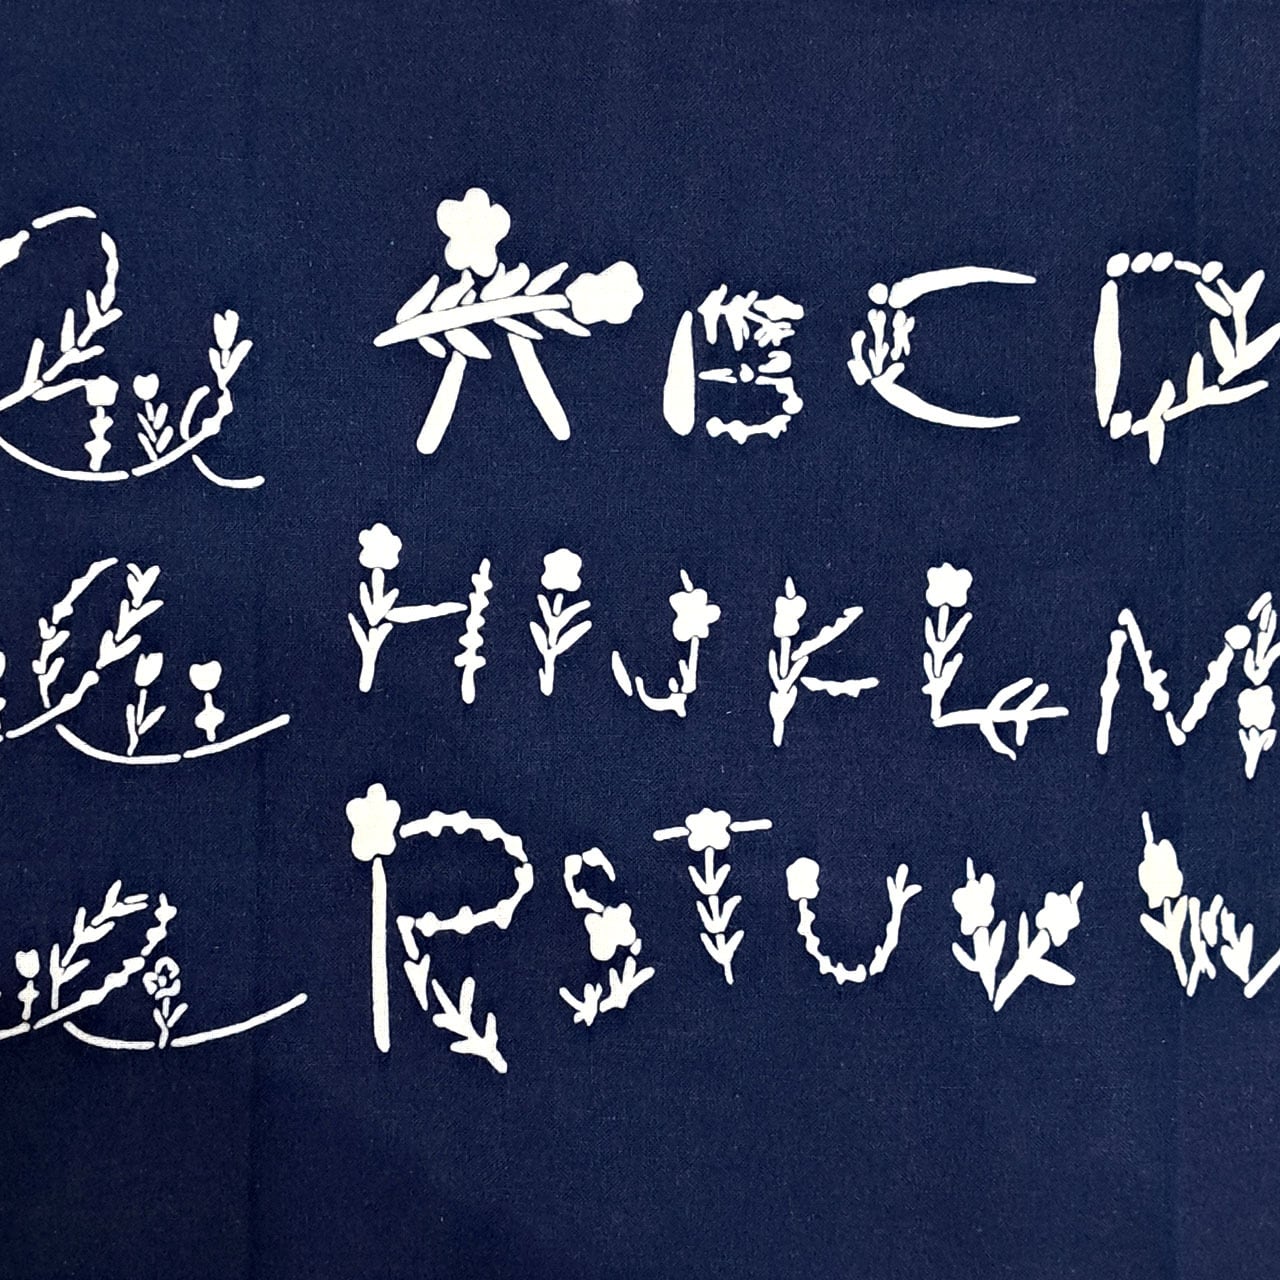 A B C D
H I J K L M
R S T U V W